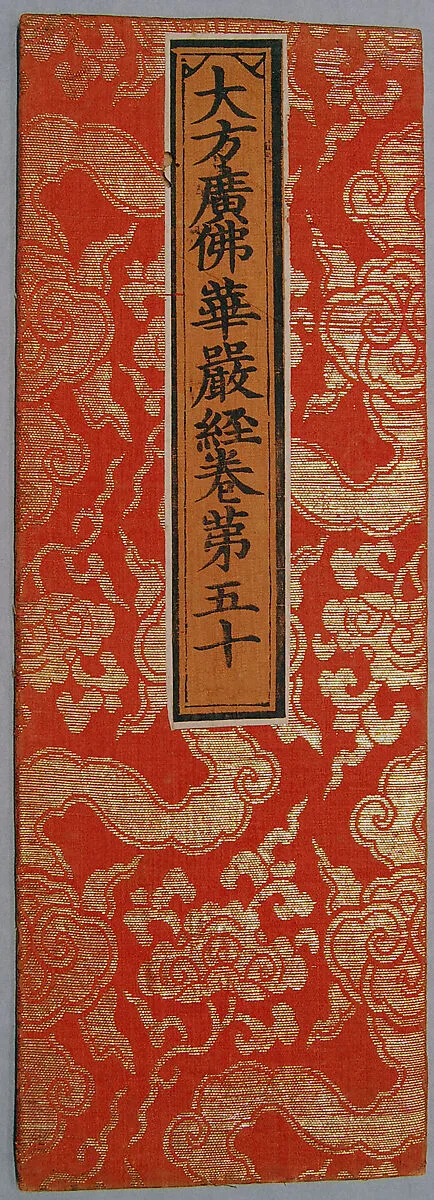 大方廣佛華嚴經卷第五十